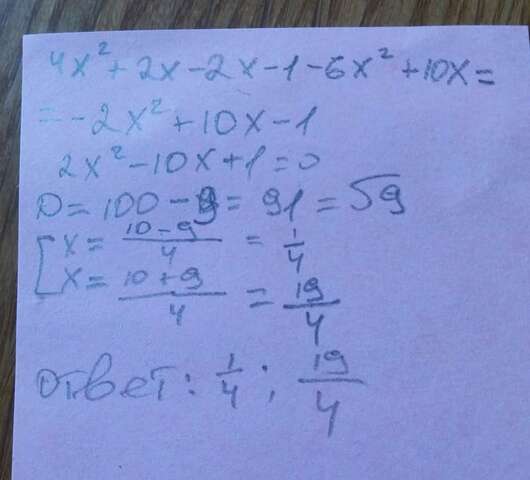 4x² + 2x - 2x - 1 - 6x² + 10x =
= -2x² + 10x - 1
2x² - 10x + 1 = 0
D = 100 - 9 = 91 = √9
[ x = (10 - 9)/4 = 1/4
x = (10 + 9)/4 = 19/4
Ответ: 1/4; 19/4